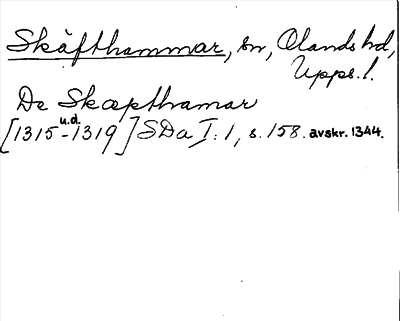 Skäfthammar, sn, Olands hd,
Upps. l.
De Skæpthamar
u.d.
[1315-1319] SDa I:1, s. 158. avskr. 1344.